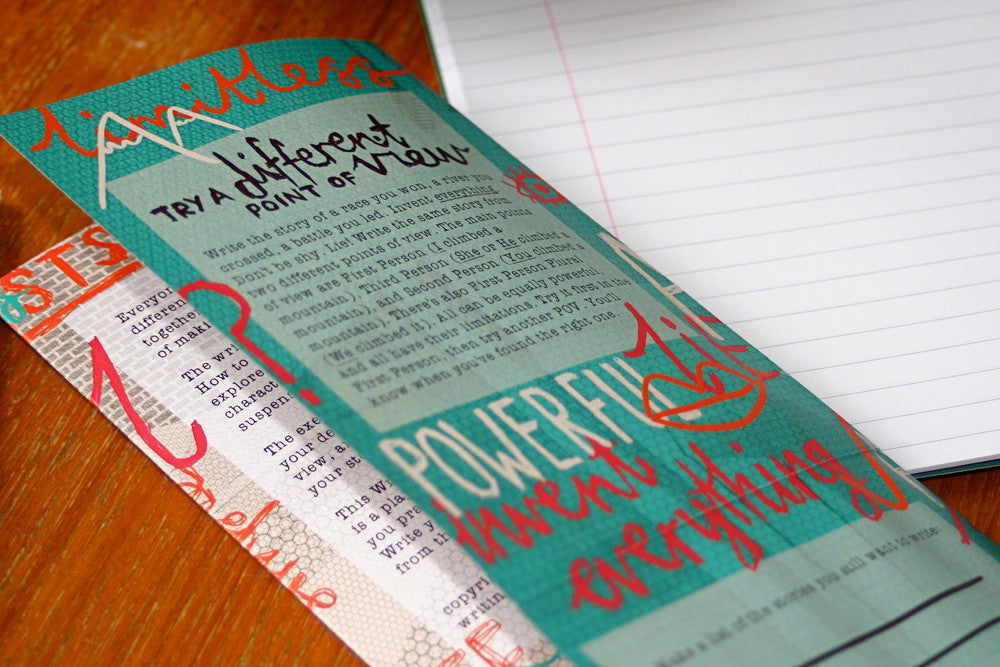 limitless
TRY A different
POINT OF view
Write the story of a race you won, a river you
crossed, a battle you led. Invent everything.
Don't be shy. Lie! Write the same story from
two different points of view. The main points
of view are First Person (I climbed a
mountain), Third Person (She or He climbed a
mountain), and Second Person (You climbed a
mountain). There's also First Person Plural
(We climbed it). All can be equally powerful,
and all have their limitations. Try it first in the
First Person, then try another POV. You'll
know when you've found the right one.
?
POWERFUL
invent
everything
Make a list of the stories you still want to write:
STS
Everyon
differen
togethe
of maki
The wri
How to
explore
charact
suspens
The exe
your de
view, a
your st
This Wr
is a pla
you pra
Write y
from th
copyri
writin